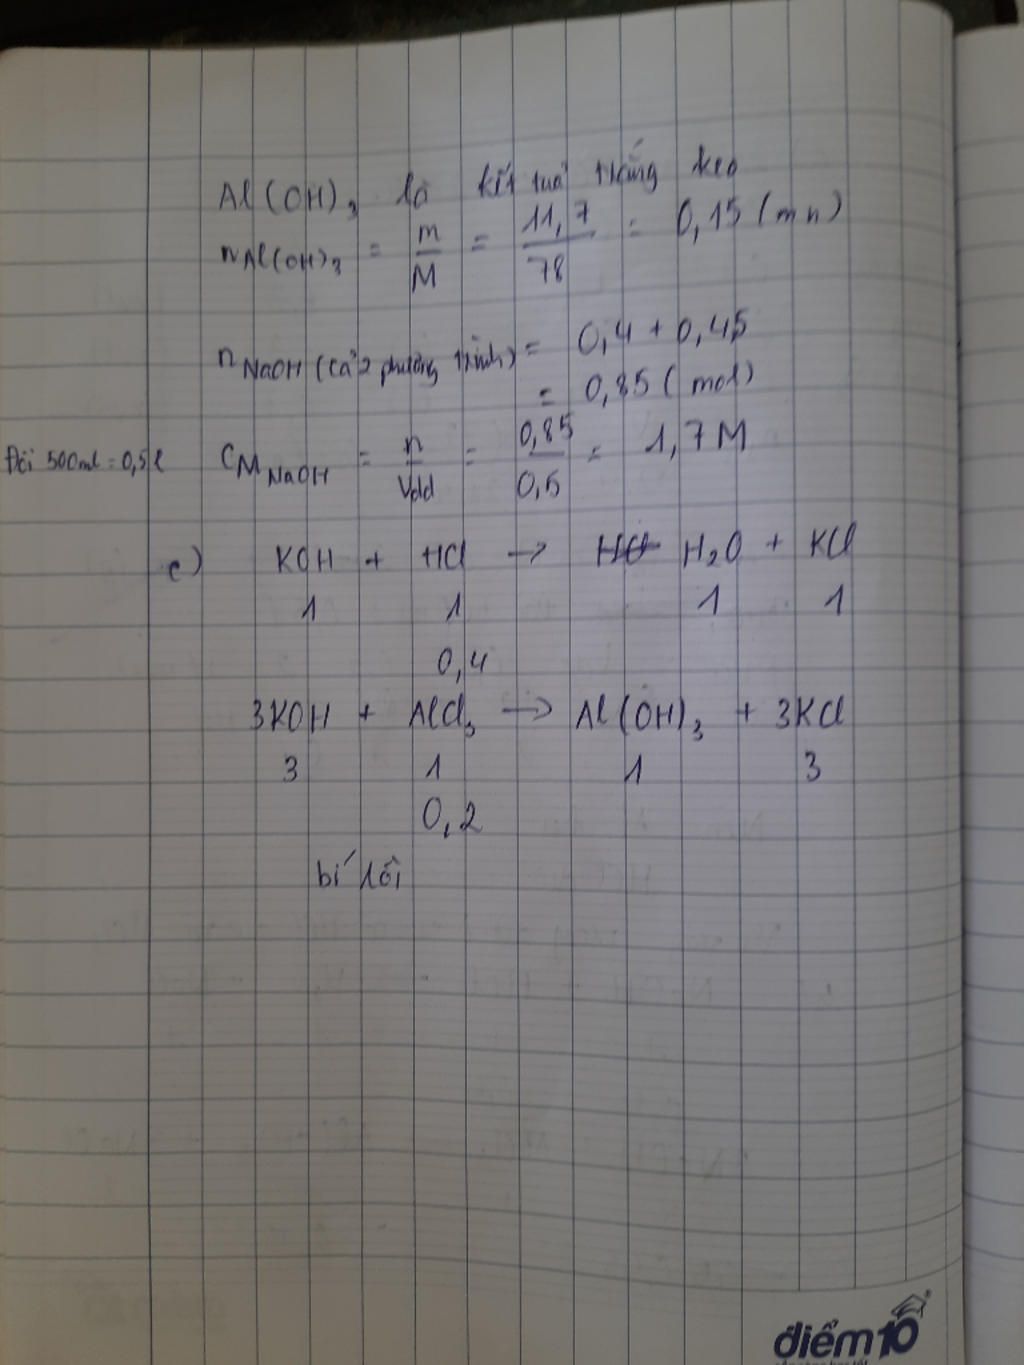 Al(OH)₃ là kết tủa trắng keo
nAl(OH)₃ = m/M = 11,7/78 = 0,15 (mn)
nNaOH (cả 2 phương trình) = 0,4 + 0,45
= 0,85 (mol)
Đổi 500ml = 0,5l
CM NaOH = n/Vdd = 0,85/0,5 = 1,7M
c) KOH + HCl → H₂O + KCl
1 1 1 1
0,4
3KOH + AlCl₃ → Al(OH)₃ + 3KCl
3 1 1 3
0,2
bí lồi
điểm10